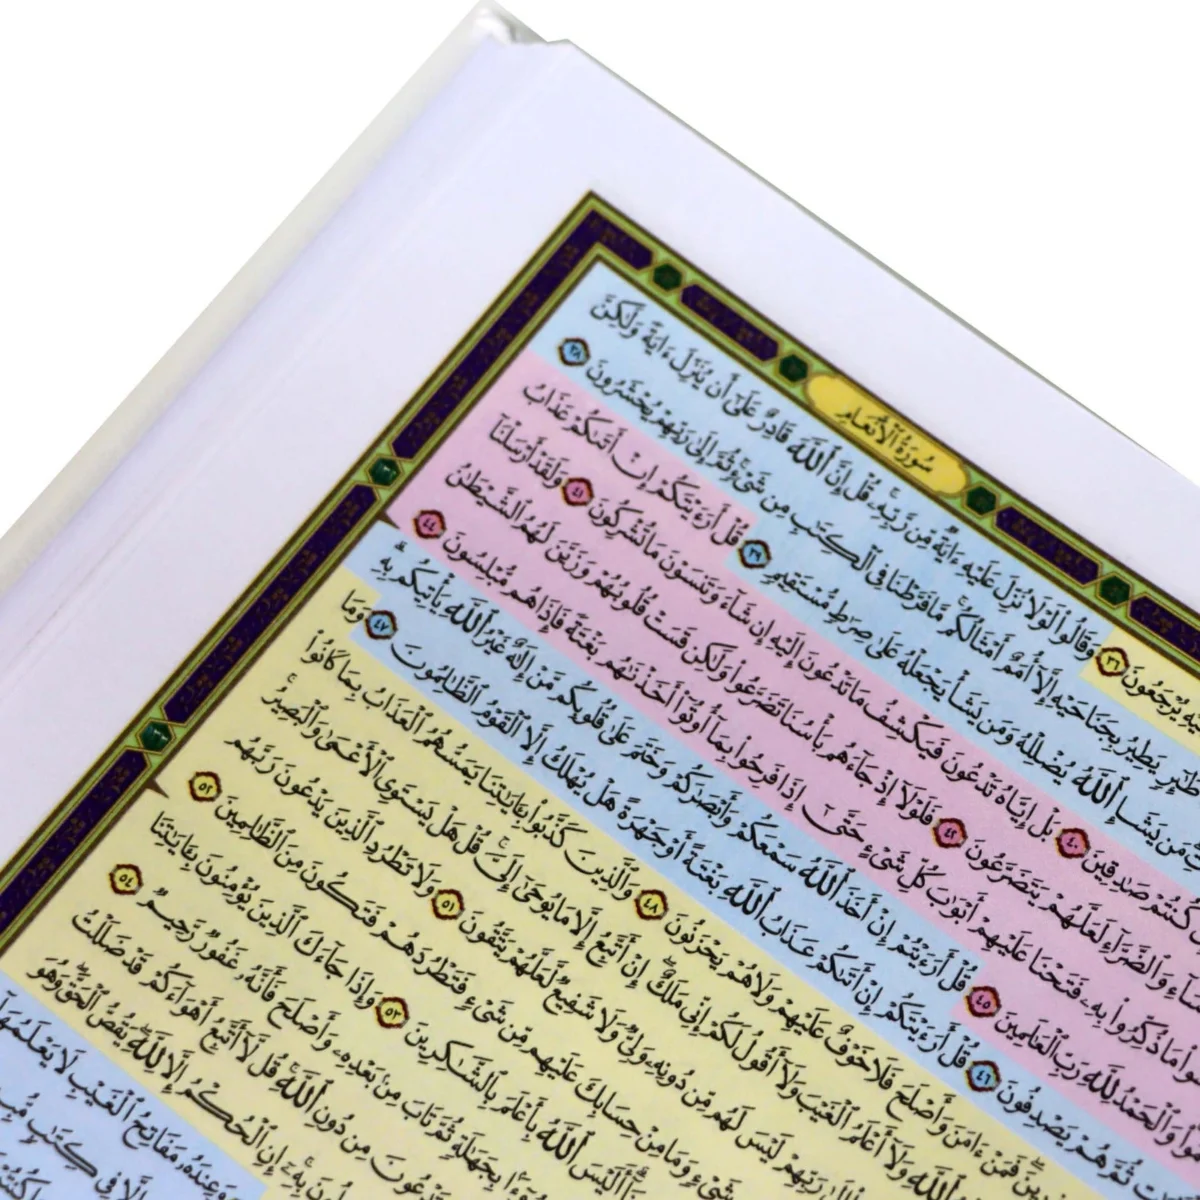 سُورَةُ الْأَنْعَامِ
يُرْجَعُونَ ٣٦ وَقَالُوا۟ لَوْلَا نُزِّلَ عَلَيْهِ ءَايَةٌ مِّن رَّبِّهِۦ قُلْ إِنَّ ٱللَّهَ قَادِرٌ عَلَىٰٓ أَن يُنَزِّلَ ءَايَةً وَلَٰكِنَّ
يَطِيرُ بِجَنَاحَيْهِ إِلَّآ أُمَمٌ أَمْثَالُكُم مَّا فَرَّطْنَا فِى ٱلْكِتَٰبِ مِن شَىْءٍ ثُمَّ إِلَىٰ رَبِّهِمْ يُحْشَرُونَ ٣٨
مَن يَشَإِ ٱللَّهُ يُضْلِلْهُ وَمَن يَشَأْ يَجْعَلْهُ عَلَىٰ صِرَٰطٍ مُّسْتَقِيمٍ ٣٩ قُلْ أَرَءَيْتَكُمْ إِنْ أَتَىٰكُمْ عَذَابُ
كُنتُمْ صَٰدِقِينَ ٤٠ بَلْ إِيَّاهُ تَدْعُونَ فَيَكْشِفُ مَا تَدْعُونَ إِلَيْهِ إِن شَآءَ وَتَنسَوْنَ مَا تُشْرِكُونَ ٤١ وَلَقَدْ أَرْسَلْنَآ
وَٱلضَّرَّآءِ لَعَلَّهُمْ يَتَضَرَّعُونَ ٤٢ فَلَوْلَآ إِذْ جَآءَهُم بَأْسُنَا تَضَرَّعُوا۟ وَلَٰكِن قَسَتْ قُلُوبُهُمْ وَزَيَّنَ لَهُمُ ٱلشَّيْطَٰنُ
مَا ذُكِّرُوا۟ بِهِۦ فَتَحْنَا عَلَيْهِمْ أَبْوَٰبَ كُلِّ شَىْءٍ حَتَّىٰٓ إِذَا فَرِحُوا۟ بِمَآ أُوتُوٓا۟ أَخَذْنَٰهُم بَغْتَةً فَإِذَا هُم مُّبْلِسُونَ ٤٤
وَٱلْحَمْدُ لِلَّهِ رَبِّ ٱلْعَٰلَمِينَ ٤٥ قُلْ أَرَءَيْتُمْ إِنْ أَخَذَ ٱللَّهُ سَمْعَكُمْ وَأَبْصَٰرَكُمْ وَخَتَمَ عَلَىٰ قُلُوبِكُم مَّنْ إِلَٰهٌ غَيْرُ ٱللَّهِ يَأْتِيكُم بِهِ
ثُمَّ هُمْ يَصْدِفُونَ ٤٦ قُلْ أَرَءَيْتَكُمْ إِنْ أَتَىٰكُمْ عَذَابُ ٱللَّهِ بَغْتَةً أَوْ جَهْرَةً هَلْ يُهْلَكُ إِلَّا ٱلْقَوْمُ ٱلظَّٰلِمُونَ ٤٧ وَمَا
فَمَنْ ءَامَنَ وَأَصْلَحَ فَلَا خَوْفٌ عَلَيْهِمْ وَلَا هُمْ يَحْزَنُونَ ٤٨ وَٱلَّذِينَ كَذَّبُوا۟ بِـَٔايَٰتِنَا يَمَسُّهُمُ ٱلْعَذَابُ بِمَا كَانُوا۟
ٱللَّهِ وَلَآ أَعْلَمُ ٱلْغَيْبَ وَلَآ أَقُولُ لَكُمْ إِنِّى مَلَكٌ إِنْ أَتَّبِعُ إِلَّا مَا يُوحَىٰٓ إِلَىَّ قُلْ هَلْ يَسْتَوِى ٱلْأَعْمَىٰ وَٱلْبَصِيرُ
رَبِّهِمْ لَيْسَ لَهُم مِّن دُونِهِۦ وَلِىٌّ وَلَا شَفِيعٌ لَّعَلَّهُمْ يَتَّقُونَ ٥١ وَلَا تَطْرُدِ ٱلَّذِينَ يَدْعُونَ رَبَّهُم
شَىْءٍ وَمَا مِنْ حِسَابِكَ عَلَيْهِم مِّن شَىْءٍ فَتَطْرُدَهُمْ فَتَكُونَ مِنَ ٱلظَّٰلِمِينَ ٥٢
أَلَيْسَ ٱللَّهُ بِأَعْلَمَ بِٱلشَّٰكِرِينَ ٥٣ وَإِذَا جَآءَكَ ٱلَّذِينَ يُؤْمِنُونَ بِـَٔايَٰتِنَا
بِجَهَٰلَةٍ ثُمَّ تَابَ مِنۢ بَعْدِهِۦ وَأَصْلَحَ فَأَنَّهُۥ غَفُورٌ رَّحِيمٌ ٥٤
مِن دُونِ ٱللَّهِ قُل لَّآ أَتَّبِعُ أَهْوَآءَكُمْ قَدْ ضَلَلْتُ
بِهِۦٓ إِنِ ٱلْحُكْمُ إِلَّا لِلَّهِ يَقُصُّ ٱلْحَقَّ وَهُوَ
وَعِندَهُۥ مَفَاتِحُ ٱلْغَيْبِ لَا يَعْلَمُهَآ
إِلَّا فِى كِتَٰبٍ